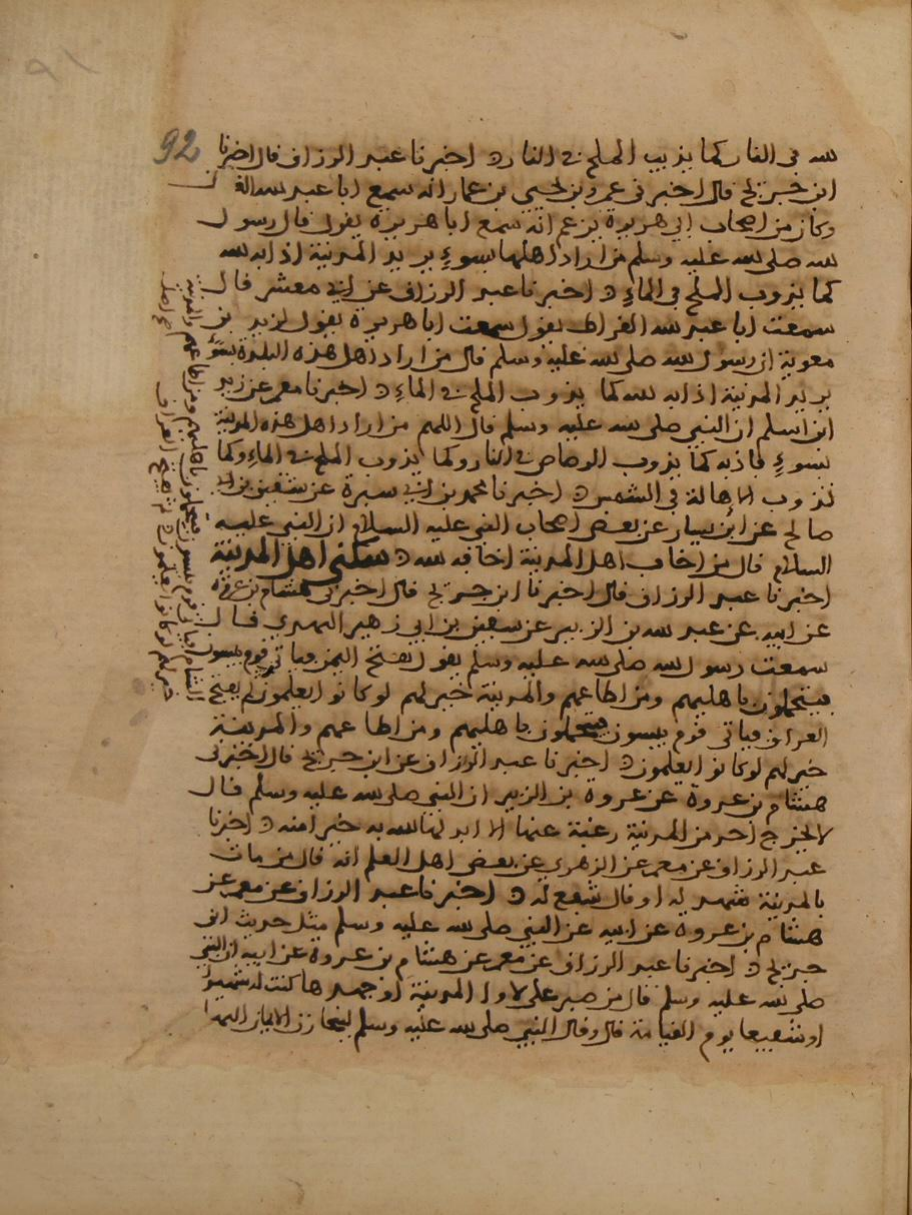 92
الله في النار كما يذيب الملح في النار اخبرنا عبد الرزاق قال اخبرنا
ابن جريج قال اخبرني عمرو بن يحيى بن عمار انه سمع ابا عبد الله الق
وكان من اصحاب ابي هريرة يزعم انه سمع ابا هريرة يقول قال رسول
الله صلى الله عليه وسلم من اراد اهلها بسوء يريد المدينة اذابه الله
كما يذوب الملح في الماء اخبرنا عبد الرزاق عن ابي معشر قال
سمعت ابا عبد الله القراظ يقول سمعت ابا هريرة يقول لزيد بن
معوية ان رسول الله صلى الله عليه وسلم قال من اراد اهل هذه البلدة بسوء
يريد المدينة اذابه الله كما يذوب الملح في الماء اخبرنا معمر عن زيد
ابن اسلم ان النبي صلى الله عليه وسلم قال اللهم من اراد اهل هذه المدينة
بسوء فاذبه كما يذوب الرصاص في النار وكما يذوب الملح في الماء وكما
تذوب الاهالة في الشمس اخبرنا محمد بن ابي سبرة عن
صالح عن ابن يسار عن بعض اصحاب النبي عليه السلام ان النبي عليه
السلام قال من اخاف اهل المدينة اخافه الله سكنى اهل المدينة
اخبرنا عبد الرزاق قال اخبرنا ابن جريج قال اخبرني هشام بن عروة
عن ابيه عن عبد الله بن الزبير عن سفين بن ابي زهير النهدي قال
سمعت رسول الله صلى الله عليه وسلم يقول تفتح اليمن فياتي قوم يبسون
فيتحملون باهليهم ومن اطاعهم والمدينة خير لهم لو كانوا يعلمون ثم يفتح
العراق فياتي قوم يبسون فيتحملون باهليهم ومن اطاعهم والمدينة
خير لهم لو كانوا يعلمون اخبرنا عبد الرزاق عن ابن جريج قال اخبرني
هشام بن عروة عن عروة بن الزبير ان النبي صلى الله عليه وسلم قال
لا يخرج احد من المدينة رغبة عنها الا ابدلها الله به خير امنه اخبرنا
عبد الرزاق عن معمر عن الزهري عن بعض اهل العلم انه قال من مات
بالمدينة شهد له او قال شفع له اخبرنا عبد الرزاق عن معمر عن
هشام بن عروة عن ابيه عن النبي صلى الله عليه وسلم مثل حديث ابن
جريج اخبرنا عبد الرزاق عن معمر عن هشام بن عروة عن ابيه ان النبي
صلى الله عليه وسلم قال من صبر على لاوا المدينة او جهدها كنت له شهيدا
او شفيعا يوم القيامة قال وقال النبي صلى الله عليه وسلم لينحازن الايمان اليها
الشام فياتي قوم يبسون فيتحملون باهليهم ومن اطاعهم والمدينة
خير لهم لو كانوا يعلمون ثم تفتح العراق